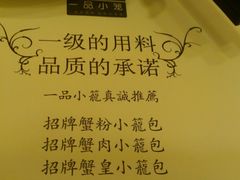 一品小笼
一级的用料
品质的承诺
一品小籠真誠推薦
招牌蟹粉小籠包
招牌蟹肉小籠包
招牌蟹皇小籠包